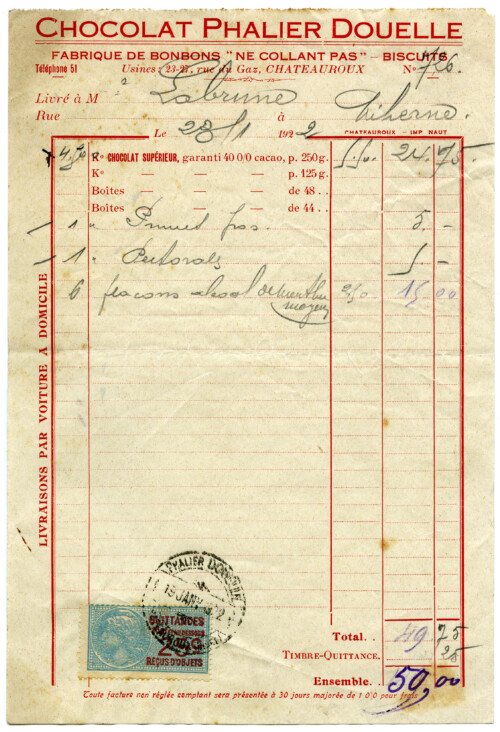 CHOCOLAT PHALIER DOUELLE
FABRIQUE DE BONBONS "NE COLLANT PAS" – BISCUITS
Téléphone 51 Usines: 23-27, rue du Gaz, CHATEAUROUX N° 716.
Livré à M Labrune
Rue à Diherne.
CHATEAUROUX – IMP NAUT
Le 28/1 1922
4.50 K° CHOCOLAT SUPÉRIEUR, garanti 40 0/0 cacao, p. 250g. 5.50 24.75
K° — — — p. 125g.
Boîtes — — — de 48 . .
Boîtes — — — de 44 . .
1 " 5 -
1 " Pectorales 5 -
6 flacons alcool de menthe moyen 2,50 15,00
LIVRAISONS PAR VOITURE A DOMICILE
PHALIER DOUELLE
19 JANV
QUITTANCES
25c
REÇUS D'OBJETS
Total. . 49 75
TIMBRE-QUITTANCE. 25
Ensemble. . 50,00
Toute facture non réglée comptant sera présentée à 30 jours majorée de 1 0'0 pour frais